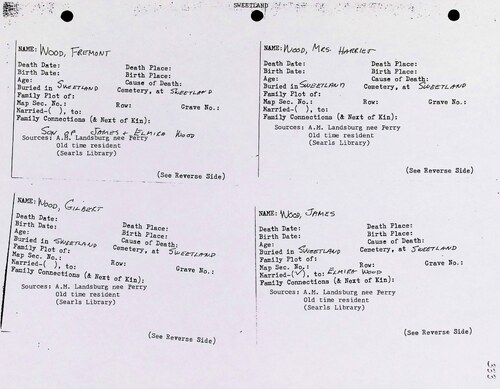 SWEETLAND
NAME: WOOD, FREMONT
Death Date: Death Place:
Birth Date: Birth Place:
Age: Cause of Death:
Buried in SWEETLAND Cemetery, at SWEETLAND
Family Plot of:
Map Sec. No.: Row: Grave No.:
Married-( ), to:
Family Connections (& Next of Kin):
SON OF JAMES + ELMIRA WOOD
Sources: A.M. Landsburg nee Perry
Old time resident
(Searls Library)
(See Reverse Side)
NAME: WOOD, MRS. HARRIET
Death Date: Death Place:
Birth Date: Birth Place:
Age: Cause of Death:
Buried in SWEETLAND Cemetery, at SWEETLAND
Family Plot of:
Map Sec. No.: Row: Grave No.:
Married-( ), to:
Family Connections (& Next of Kin):
Sources: A.M. Landsburg nee Perry
Old time resident
(Searls Library)
(See Reverse Side)
NAME: WOOD, GILBERT
Death Date: Death Place:
Birth Date: Birth Place:
Age: Cause of Death:
Buried in SWEETLAND Cemetery, at SWEETLAND
Family Plot of:
Map Sec. No.: Row: Grave No.:
Married-( ), to:
Family Connections (& Next of Kin):
Sources: A.M. Landsburg nee Perry
Old time resident
(Searls Library)
(See Reverse Side)
NAME: WOOD, JAMES
Death Date: Death Place:
Birth Date: Birth Place:
Age: Cause of Death:
Buried in SWEETLAND Cemetery, at SWEETLAND
Family Plot of:
Map Sec. No.: Row: Grave No.:
Married-(✓), to: ELMIRA WOOD
Family Connections (& Next of Kin):
Sources: A.M. Landsburg nee Perry
Old time resident
(Searls Library)
(See Reverse Side)